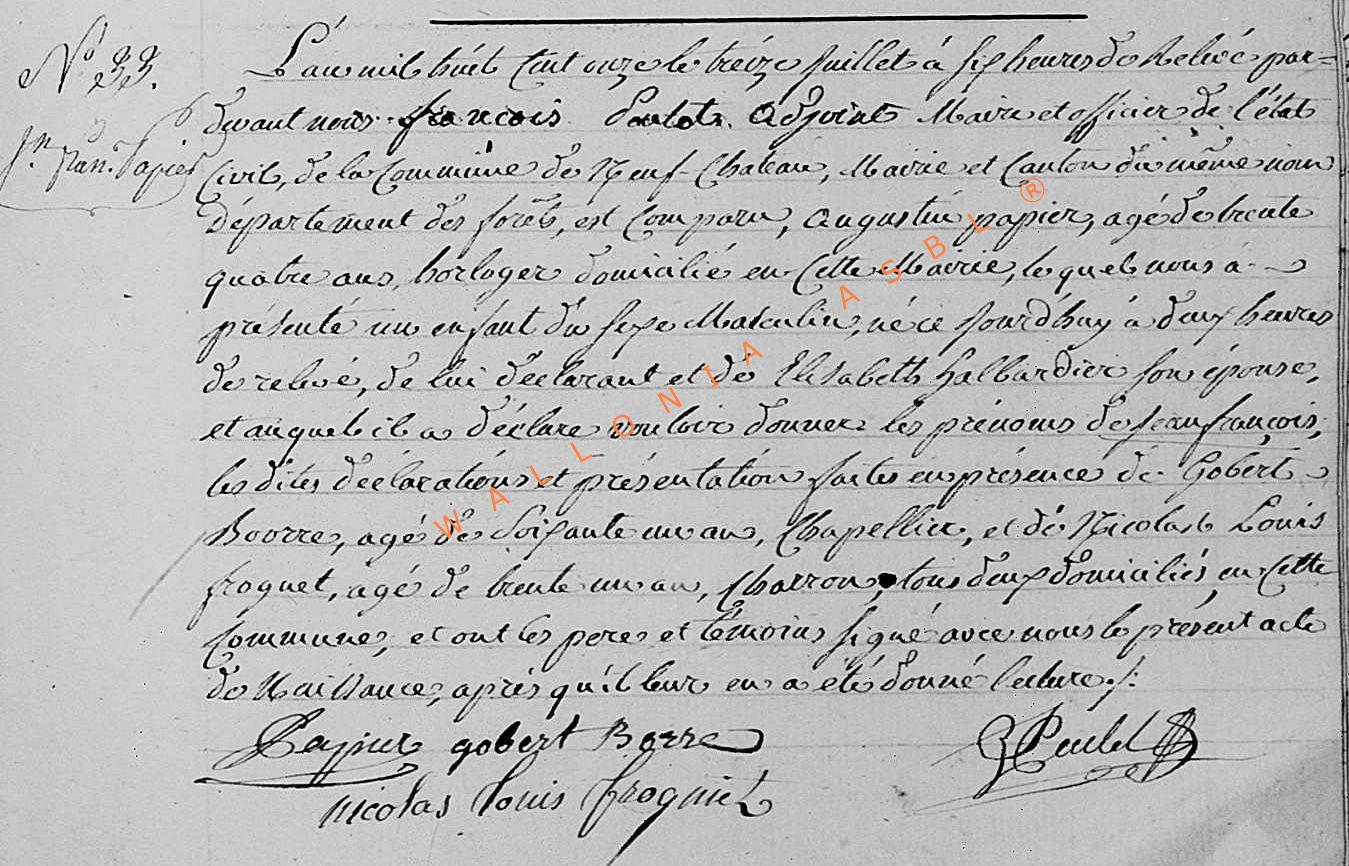 N.° 33.
J.n fran. Papier
L'an mil huit cent onze le treize Juillet à six heures de Relevé par=
devant nous françois Adjoint Maire et officier de l'état
Civil, de la Commune de Neuf-Chateau, Mairie et Canton du même nom
département des forêts, est Comparu, Augustin papier, agé de trente
quatre ans, horloger domicilié en Cette Mairie, le quel nous à
présenté un enfant du sexe Masculin, né ce Jourd'huy à deux heures
de relevé, de lui déclarant et de Elisabeth halbardier son épouse,
et auquel il a déclaré vouloir donner les prénoms de Jean françois,
les dites déclarations et présentation faites en présence de Gobert
Boorre, agé de Soixante un an, Chapellier, et de Nicolas Louis
froguet, agé de trente un an, Charron, tous deux domiciliés en Cette
Commune, et ont les pere et témoins signé avec nous le présent acte
de Naissance, après qu'il leur en a été donné lecture./:
Papier gobert Borre
nicolas louis frognié
WALLONIA ASBL ®